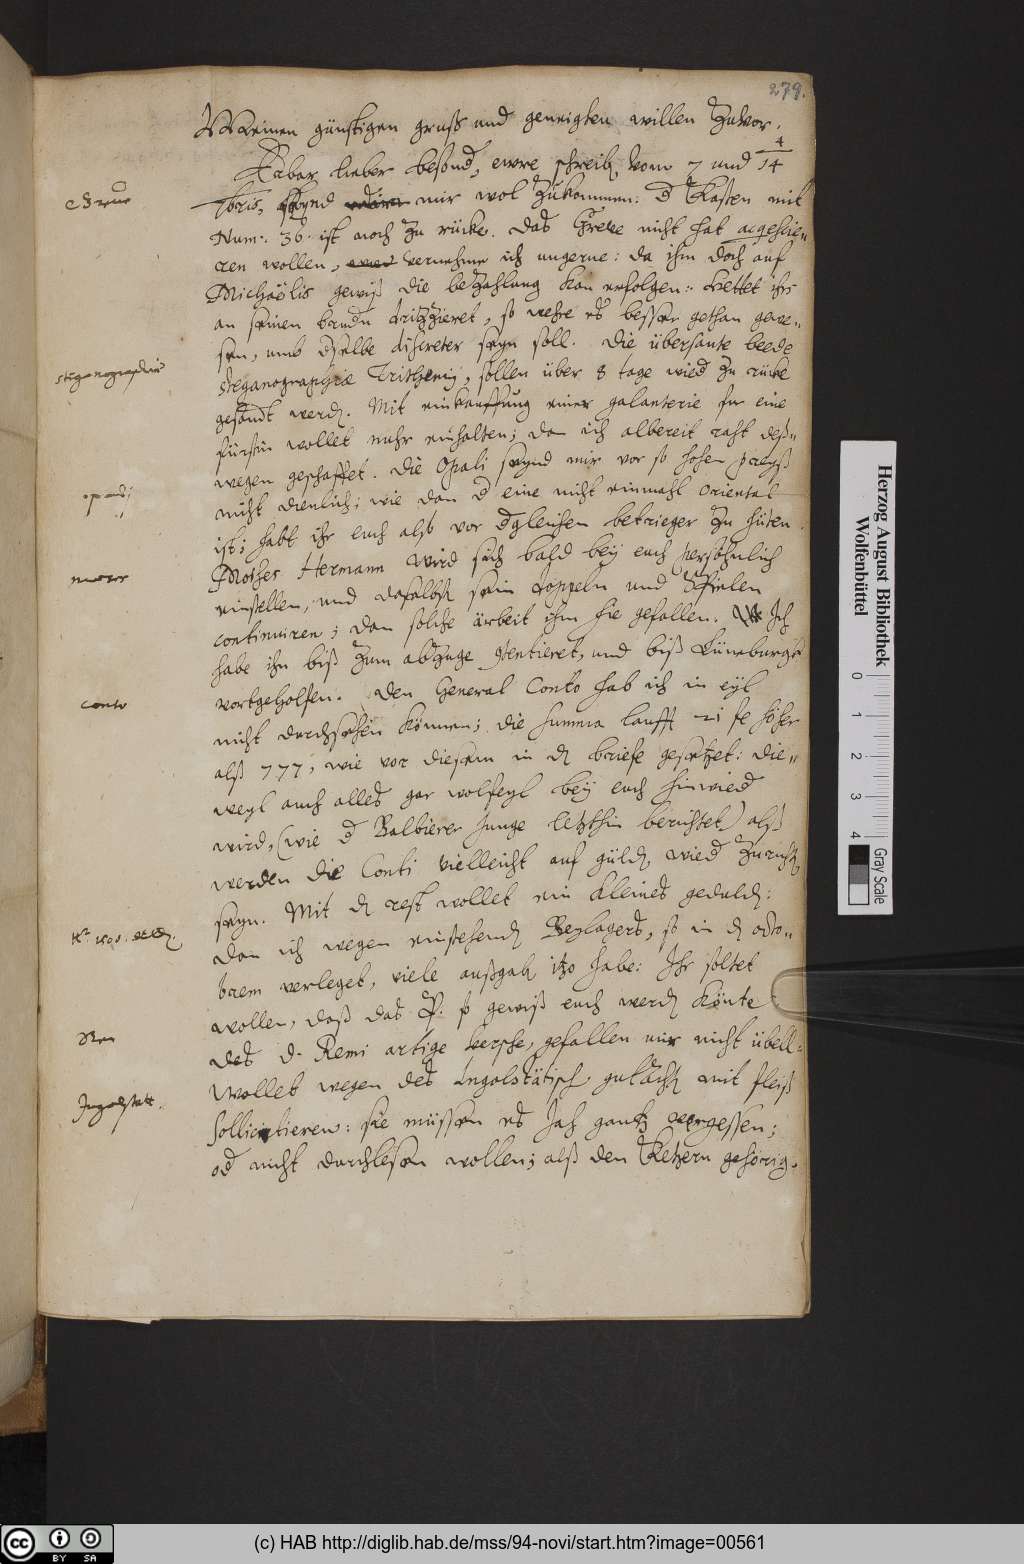 279.
Meinen günstigen gruß und geneigten willen zuvor.
Erbar lieber besond, ewre schreib, vom 7 und 4/14
7bris, seynd mir wol zukommen: d Kasten mit
Num: 36. ist noch zu rücke. Das Greve nicht hat
ren wollen, vernehme ich ungerne: da ihm doch auf
Michaëlis gewiß die bezahlung kan erfolgen: hettet ihrs
an seinen brudn so wehre es besser gethan gewe„
sen, umb dselbe discreter seyn soll. Die übersante beede
steganographiæ Trithemij, sollen über 8 tage wied zu rücke
gesandt werd. Mit einkauffung einer galanterie für eine
fürstin wollet mehr einhalten; dan ich albereit raht deß„
wegen geschaffet. Die Opali seynd mir vor so hohen preyß
nicht dienlich; wie dan d eine nicht einmahl Oriental
ist; habt ihr euch alß vor dgleichen betrieger zu hüten.
Moses Hermann wird sich bald bey euch persöhnlich
einstellen, und daselbst sein doppeln und Spielen
continuiren; dan solche arbeit ihm hie gefallen. Ich
habe ihn biß zum abzuge und biß Lüneburgk
vortgeholfen. Den General Conto hab ich in eyl
nicht durchsehen können; die summa laufft so höher
alß 777, wie vor diesem in d briefe gesetzet: die„
weyl auch alles gar wolfeyl bey euch hinwied
wird, (wie d Balbierer Junge letzthin berichtet) alß
werden die Conti vielleicht auf güld, wied zurückh
seyn. Mit d rest wollet ein kleines geduld:
dan ich wegen einstehend Beylagers, so in d octo„
brem verleget, viele außgab itzo habe: Ihr soltet
wollen, daß das so gewiß euch werd könte
des D. Remi artige verse, gefallen mir nicht übell:
Wollet wegen des Ingolstätisch gutacht mit fleiß
sollicitieren: sie müssen es Jah gantz vergessen;
od nicht durchlesen wollen; alß den Ketzern gehörig.
Greve
steganographia
opali
moses
Conto
Rem
Ingolstatt.
Herzog August Bibliothek
Wolfenbüttel
0 1 2 3 4
Gray Scale
BY SA
(c) HAB http://diglib.hab.de/mss/94-novi/start.htm?image=00561